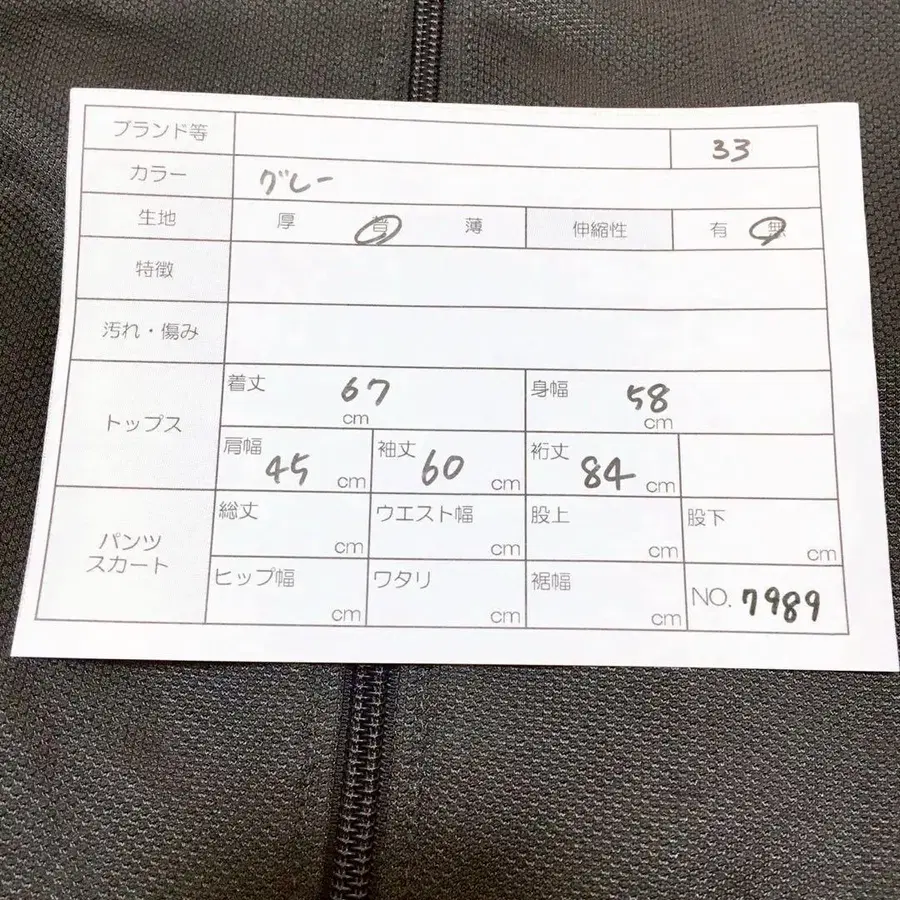 ブランド等 33
カラー グレー
生地 厚 普 薄 伸縮性 有 無
特徴
汚れ・傷み
トップス
着丈 67 cm 身幅 58 cm
肩幅 45 cm 袖丈 60 cm 裄丈 84 cm
パンツ
スカート
総丈 cm ウエスト幅 cm 股上 cm 股下 cm
ヒップ幅 cm ワタリ cm 裾幅 cm NO. 7989